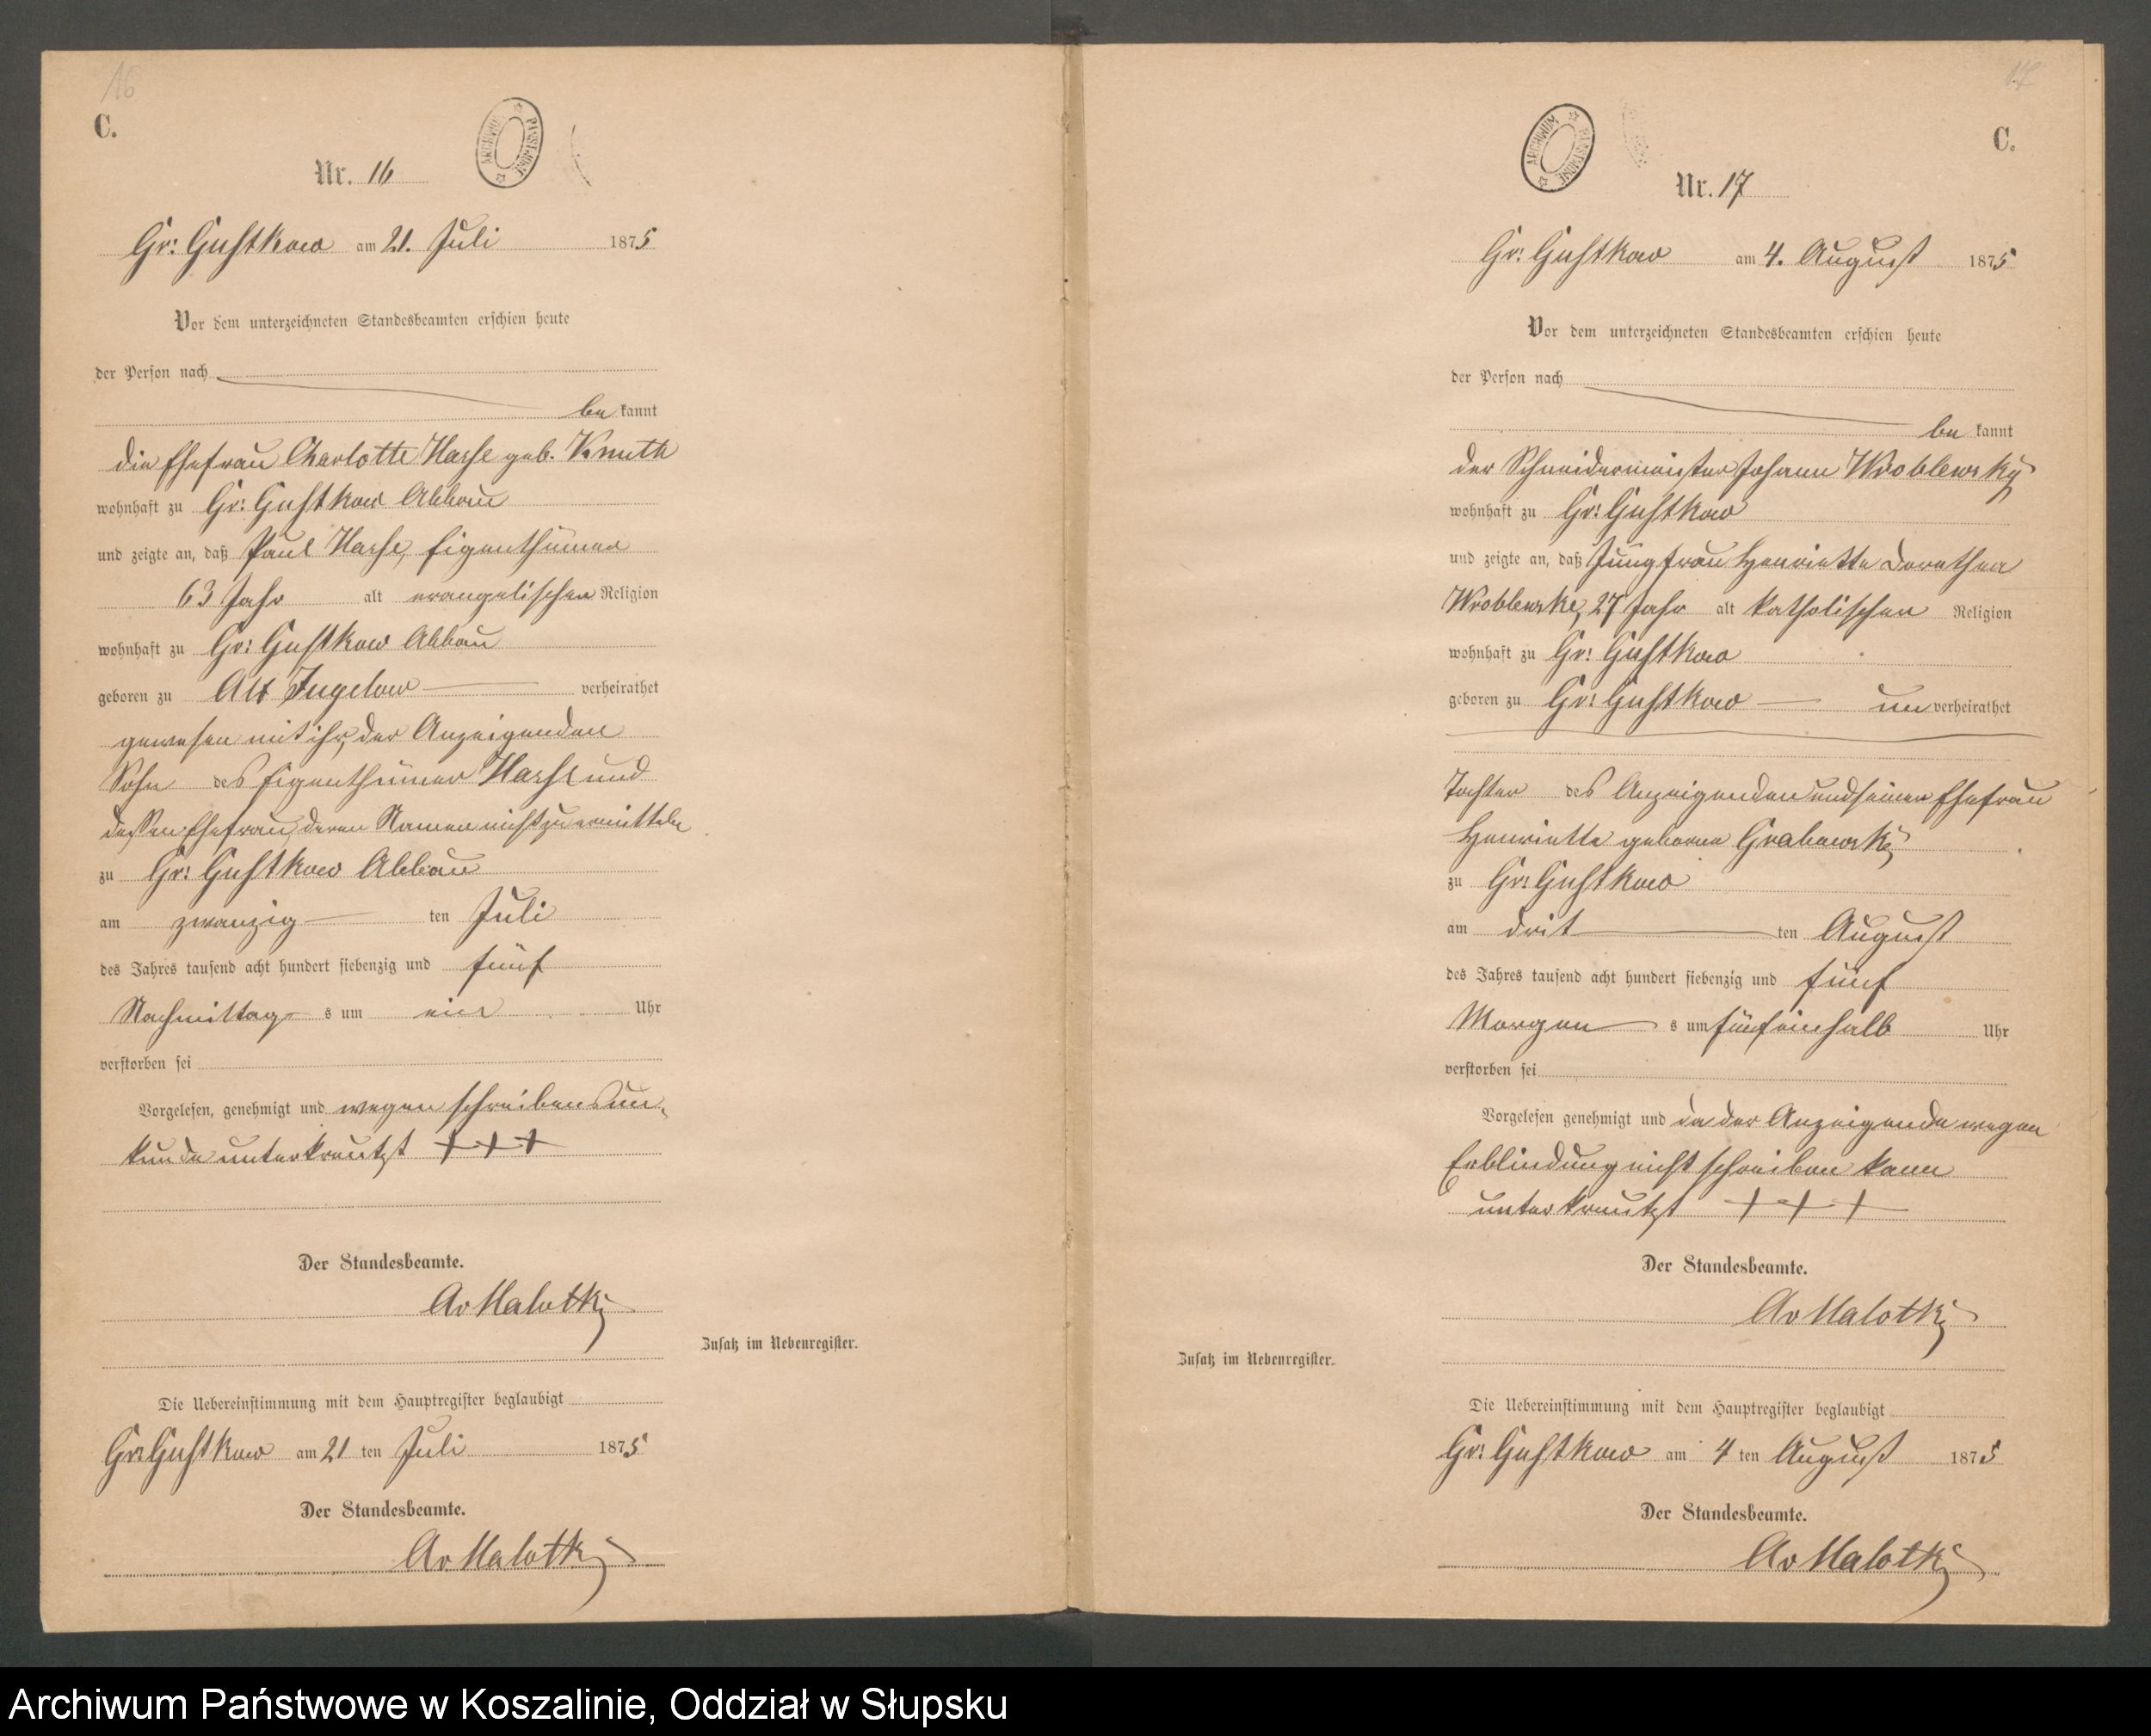 16
C.
ARCHIWUM PAŃSTWOWE
Nr. 16
Gr: Gustkow am 21. Juli 1875
Vor dem unterzeichneten Standesbeamten erschien heute
der Person nach
be kannt
die Ehefrau Charlotte Hasse geb. Knuth
wohnhaft zu Gr: Gustkow Abbau
und zeigte an, daß Paul Hasse, Eigenthümer
63 Jahr alt evangelischer Religion
wohnhaft zu Gr: Gustkow Abbau
geboren zu Alt Jugelow verheirathet
gewesen mit ihr, der Anzeigenden
Sohn des Eigenthümer Hasse und
dessen Ehefrau, deren Namen nicht zu ermitteln
zu Gr: Gustkow Abbau
am zwanzig ten Juli
des Jahres tausend acht hundert siebenzig und fünf
Nachmittag s um ein Uhr
verstorben sei
Vorgelesen, genehmigt und wegen schreibensun-
kunde unterkreutzt +++
Der Standesbeamte.
Av Malotky
Zusatz im Nebenregister.
Die Uebereinstimmung mit dem Hauptregister beglaubigt
Gr: Gustkow am 21 ten Juli 1875
Der Standesbeamte.
Av Malotky
17
C.
ARCHIWUM PAŃSTWOWE
Nr. 17
Gr: Gustkow am 4. August 1875
Vor dem unterzeichneten Standesbeamten erschien heute
der Person nach
be kannt
der Schneidermeister Johann Wroblewsky
wohnhaft zu Gr: Gustkow
und zeigte an, daß Jungfrau Henriette Dorothea
Wroblewske, 27 Jahr alt katholischer Religion
wohnhaft zu Gr: Gustkow
geboren zu Gr: Gustkow un verheirathet
Tochter des Anzeigenden und seiner Ehefrau
Henriette geborne Grabowsky
zu Gr: Gustkow
am drit ten August
des Jahres tausend acht hundert siebenzig und fünf
Morgen s um fünfeinhalb Uhr
verstorben sei
Vorgelesen genehmigt und da der Anzeigende wegen
Erblindung nicht schreiben kann
unterkreutzt + + +
Der Standesbeamte.
Av Malotky
Zusatz im Nebenregister.
Die Uebereinstimmung mit dem Hauptregister beglaubigt
Gr: Gustkow am 4 ten August 1875
Der Standesbeamte.
Av Malotky
Archiwum Państwowe w Koszalinie, Oddział w Słupsku